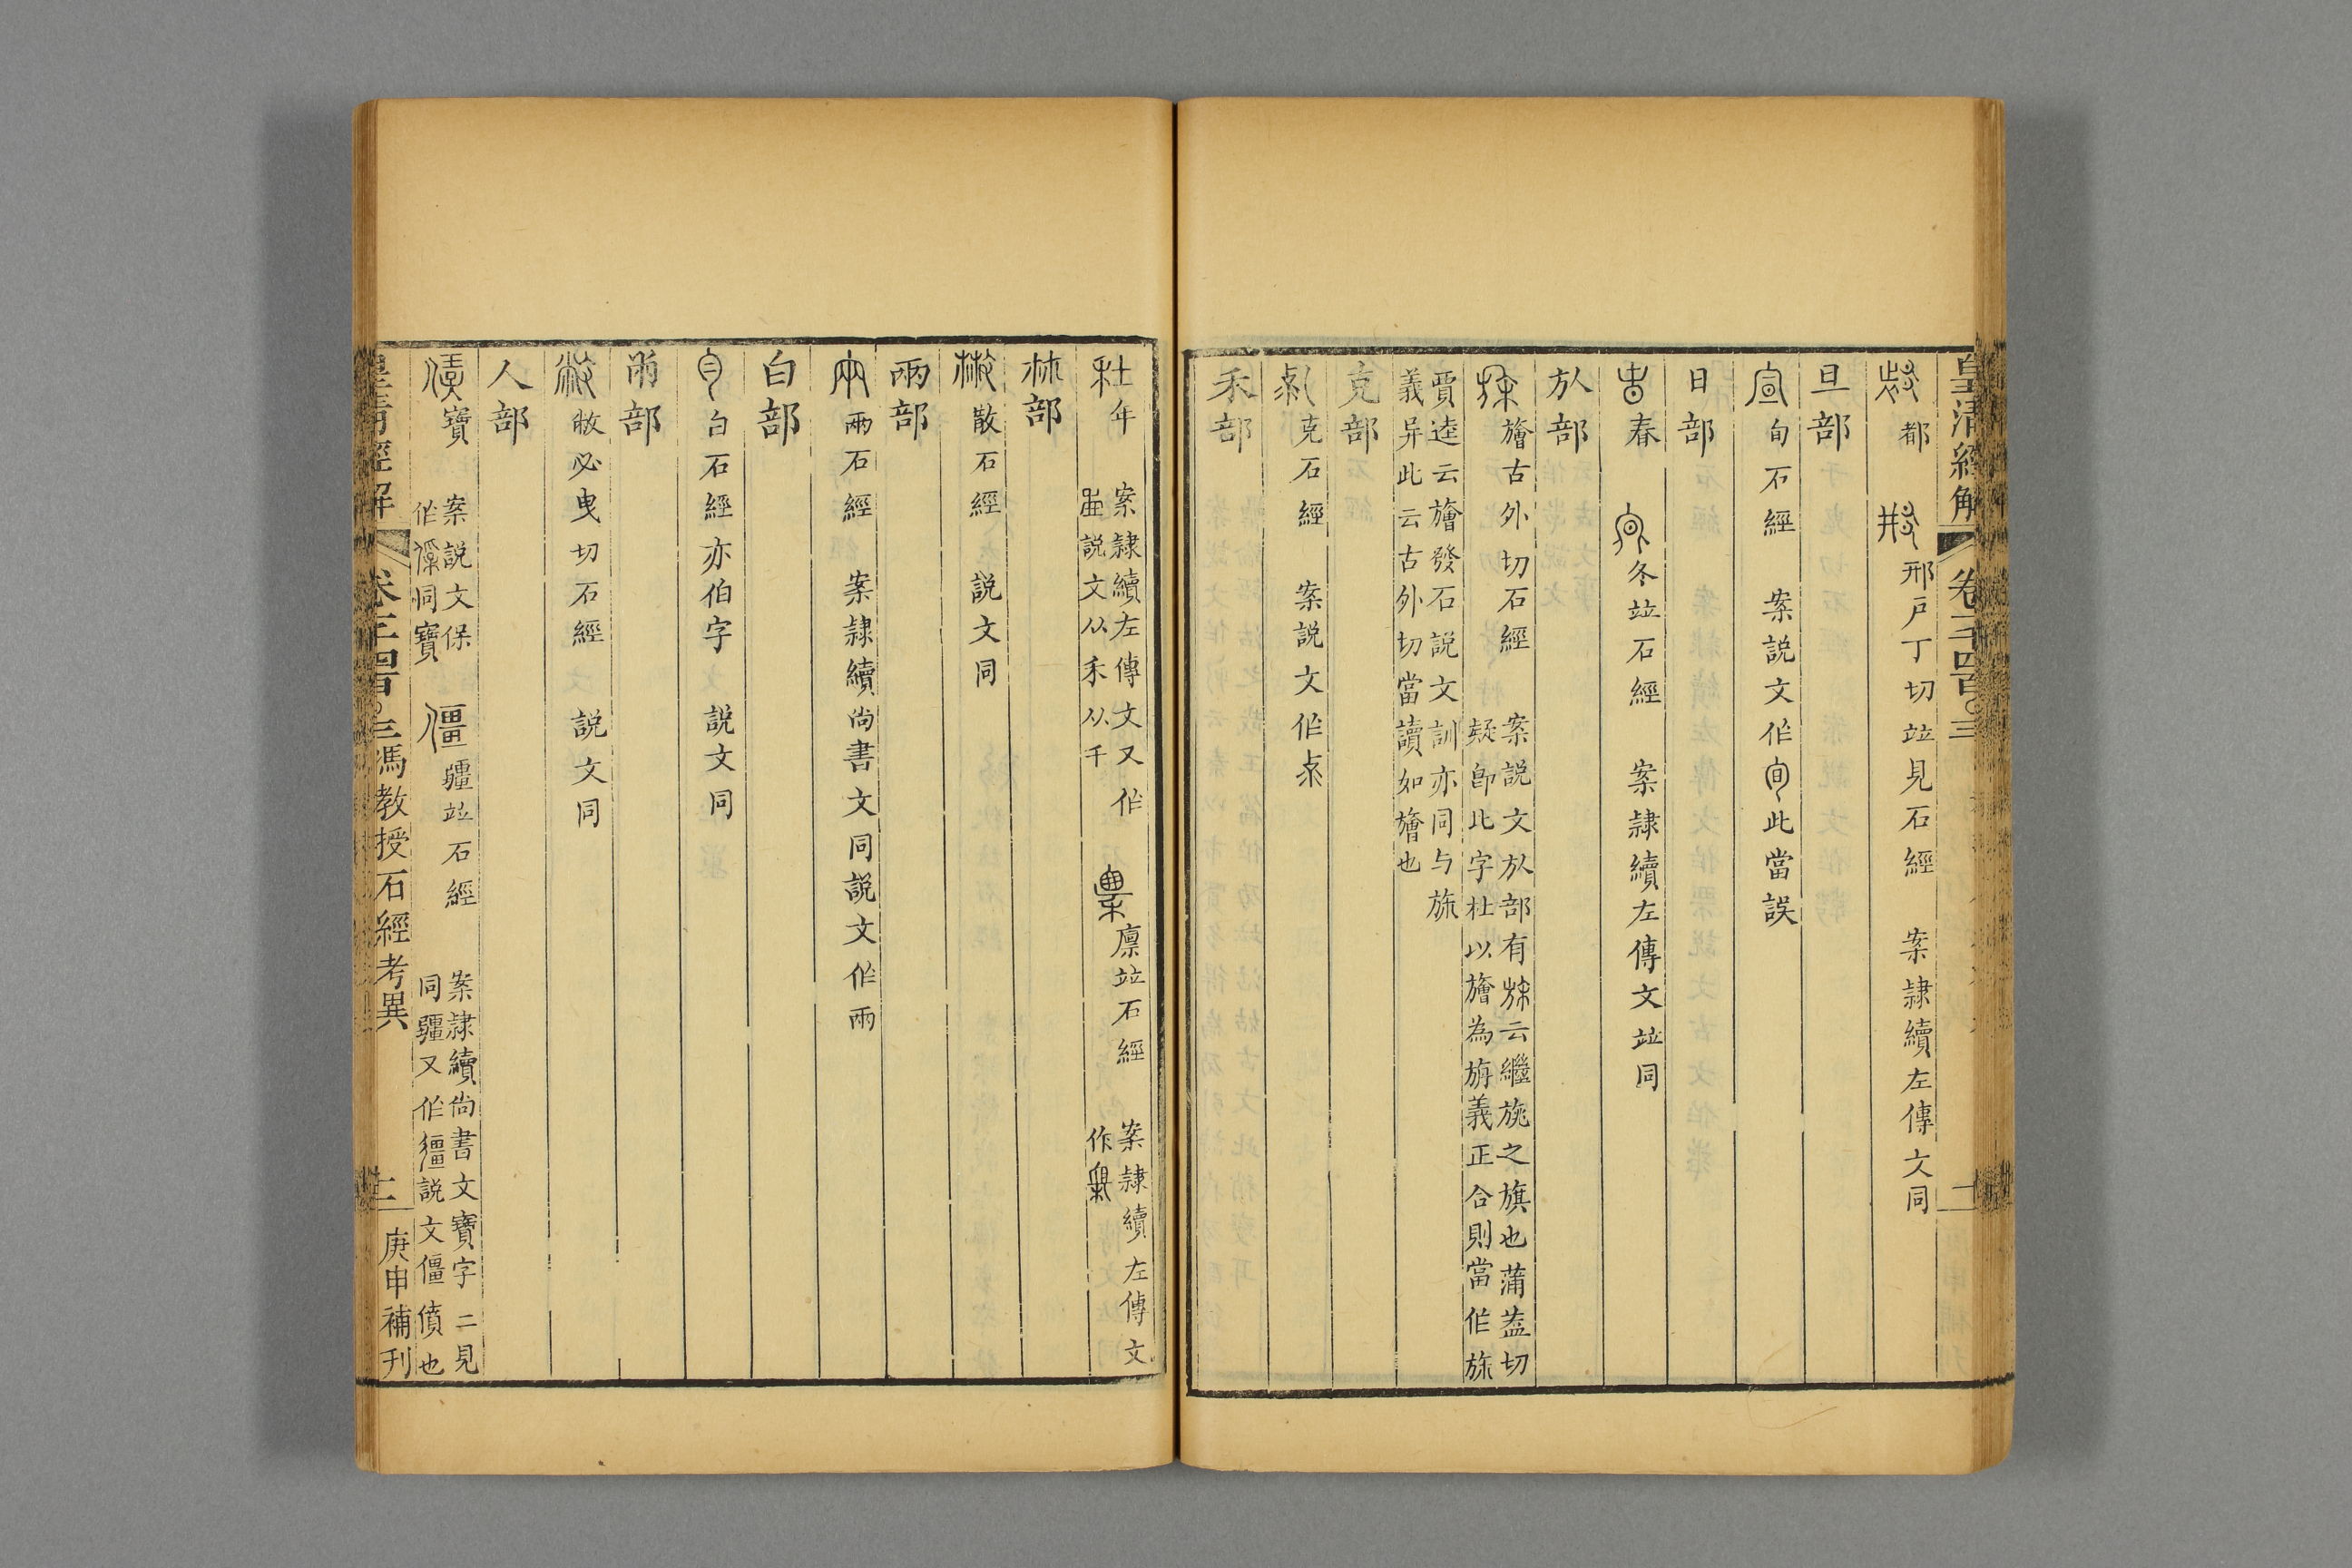 皇清經解 卷一千四百〇三
都 邢戶丁切竝見石經 案隸續左傳文同
旦部
旬石經 案說文作此當誤
日部
春 冬竝石經 案隸續左傳文竝同
㫃部
旝古外切石經 案說文㫃部有云繼旐之旗也蒲葢切
疑卽此字杜以旝為旃義正合則當作
賈逵云旝發石說文訓亦同与
義异此云古外切當讀如旝也
克部
克石經 案說文作
禾部
年 案隸續左傳文又作
說文从禾从千
廩竝石經 案隸續左傳文
作
㯥部
散石經 說文同
㒳部
兩石經 案隸續尙書文同說文作㒳
白部
白石經亦伯字 說文同
㡀部
敝必曵切石經 說文同
人部
寶 案說文保
作同寶
僵 疆竝石經 案隸續尙書文寶字二見
同疆又作說文僵僨也
皇清經解 卷一千四百〇三 馮教授石經考異 二 庚申補刊